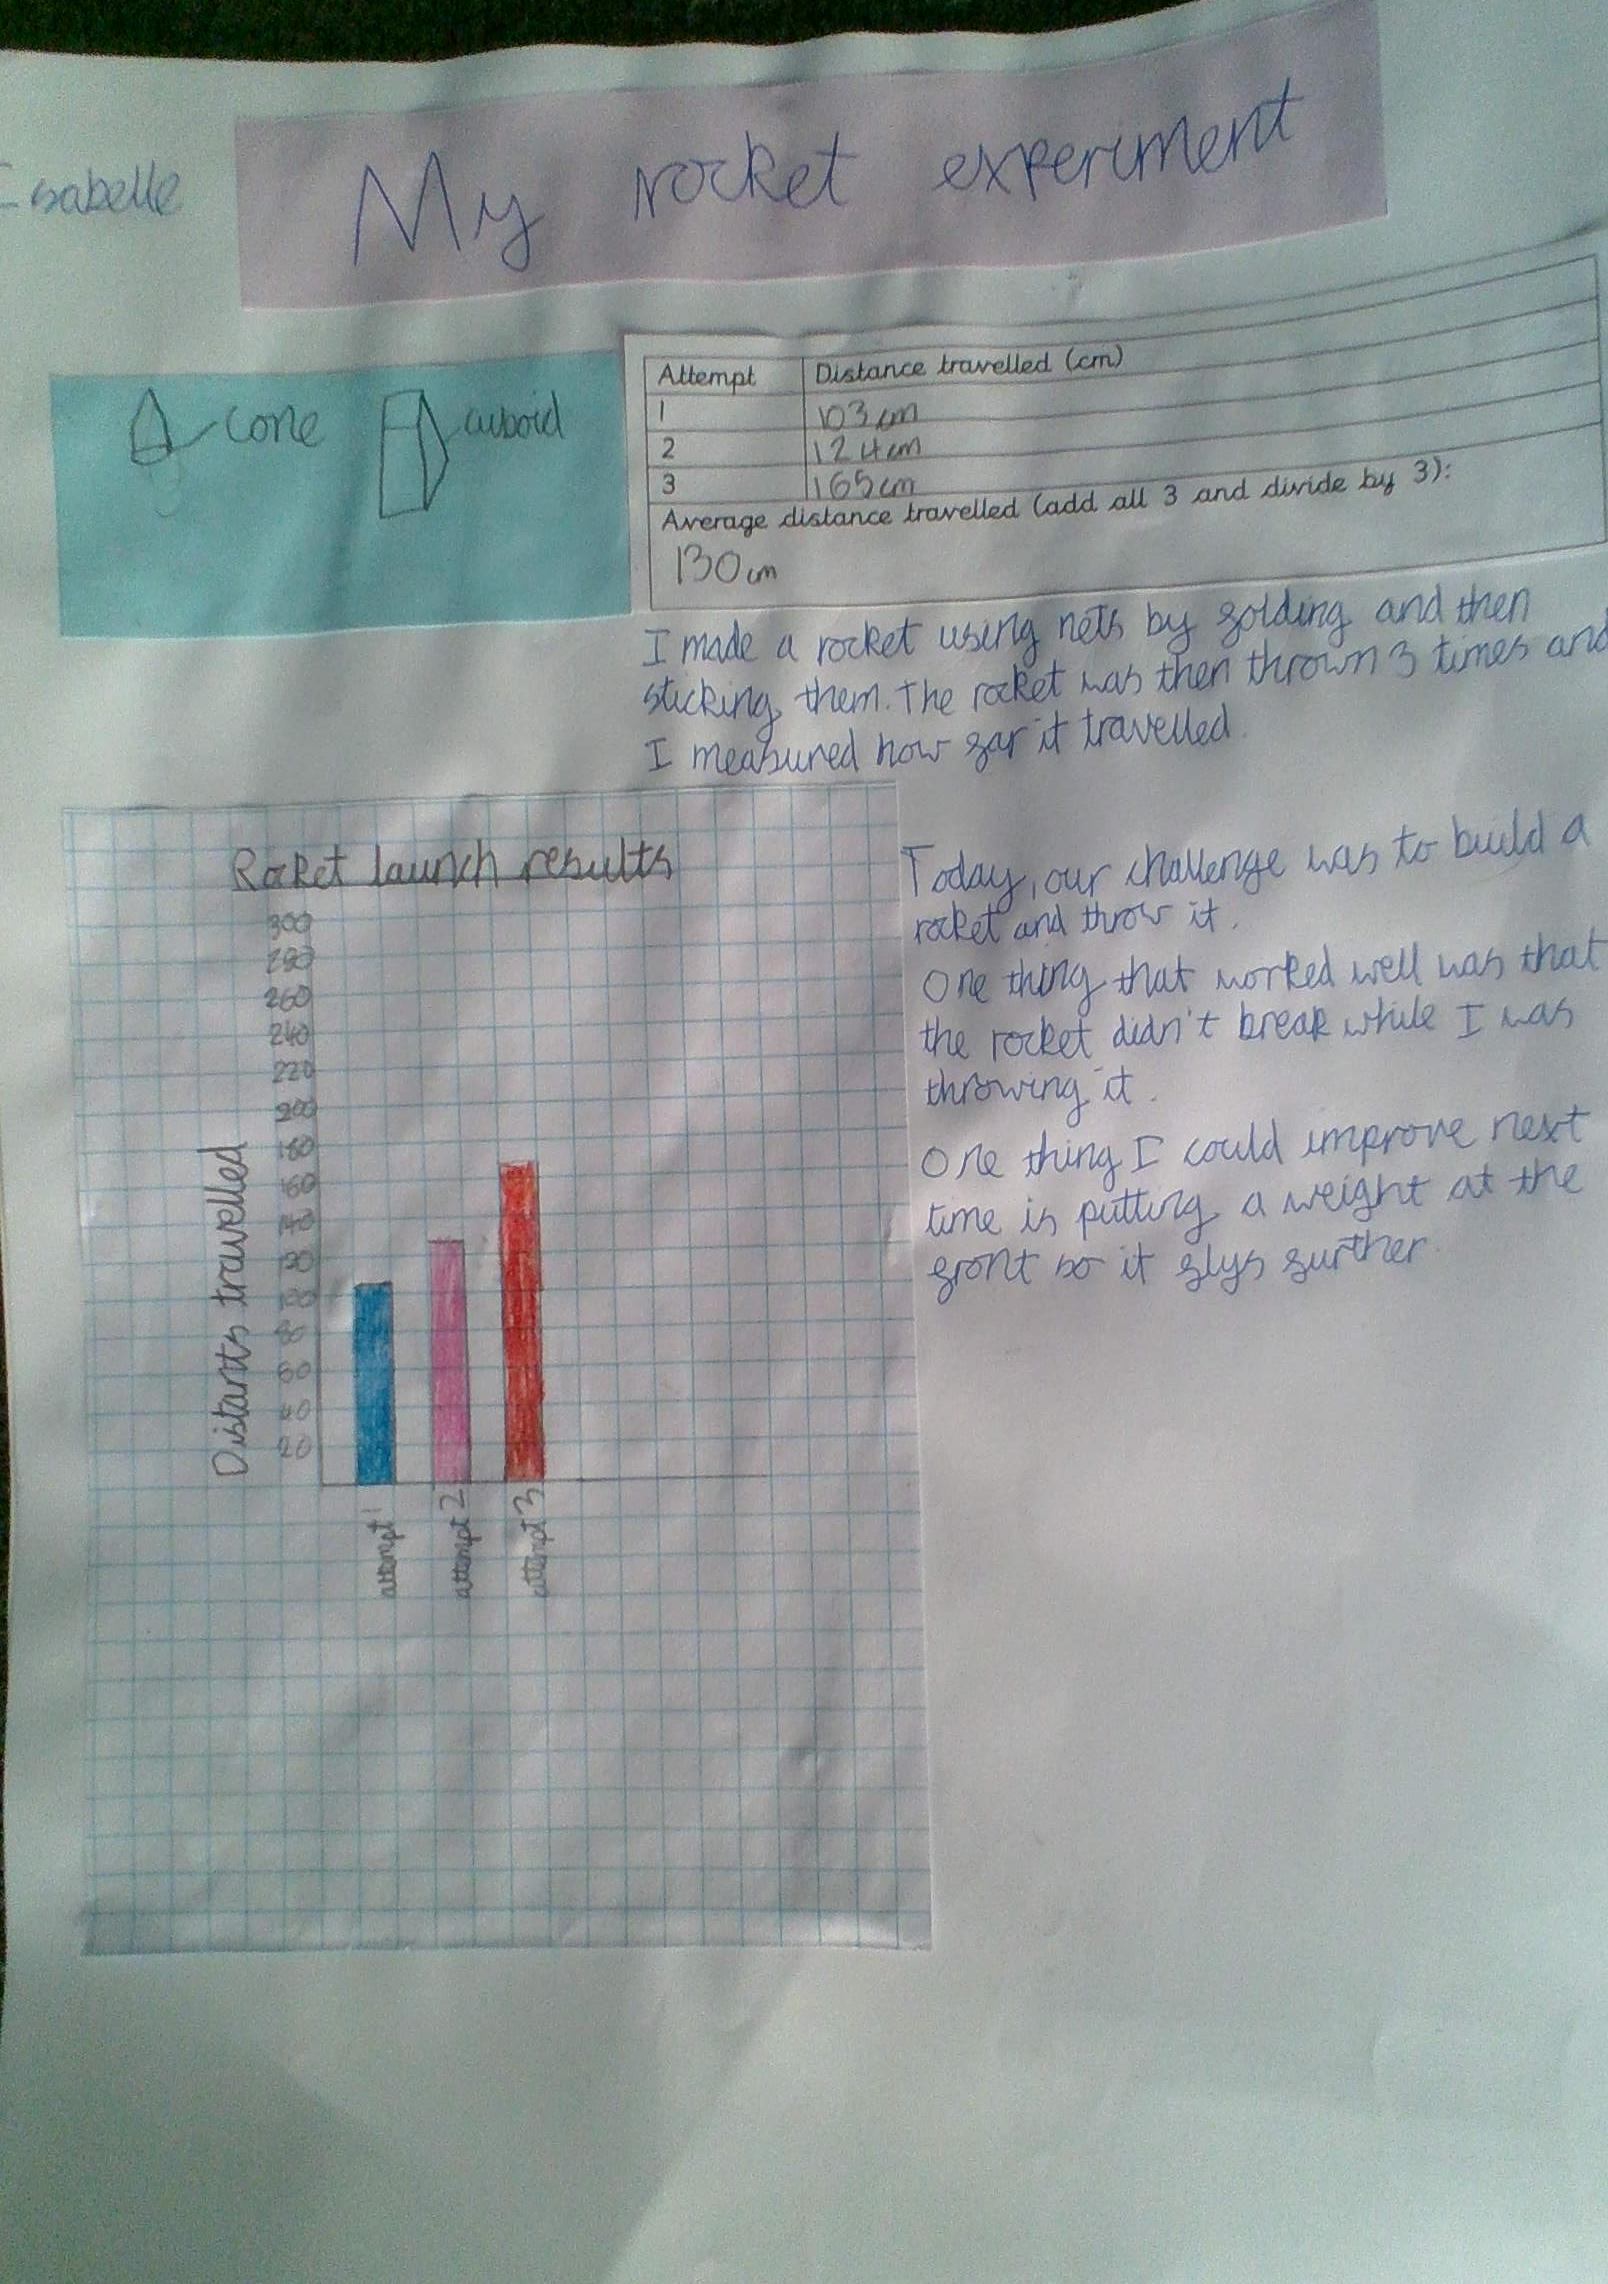 Isabelle
My rocket experiment
cone
cuboid
Attempt Distance travelled (cm)
1 103cm
2 124cm
3 165cm
Average distance travelled (add all 3 and divide by 3):
130cm
I made a rocket using nets by folding and then
sticking them. The rocket was then thrown 3 times and
I measured how far it travelled.
Rocket launch results
300
280
260
240
220
200
180
160
140
120
100
80
60
40
20
Distants travelled
attempt 1
attempt 2
attempt 3
Today, our challenge was to build a
rocket and throw it.
One thing that worked well was that
the rocket didn't break while I was
throwing it.
One thing I could improve next
time is putting a weight at the
front so it flys further